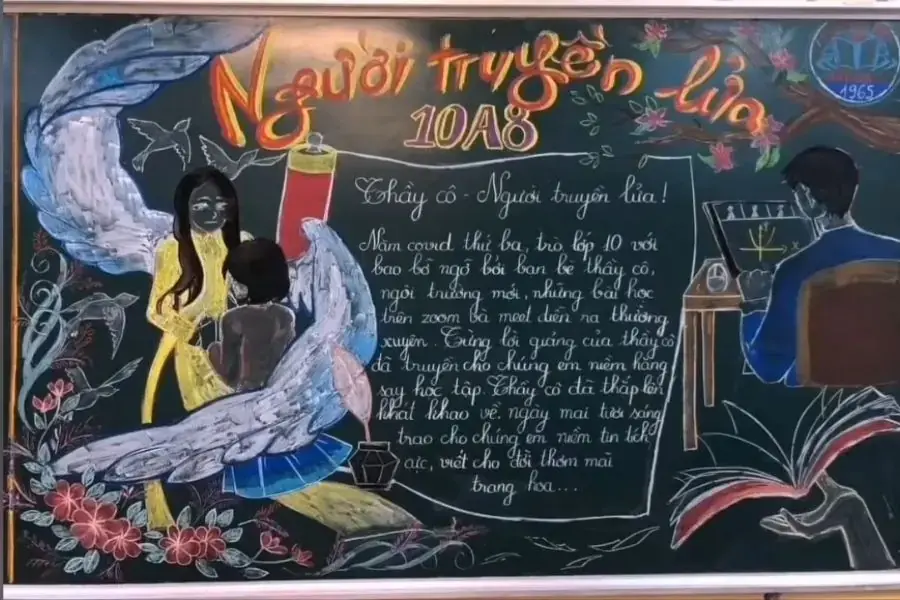 Người truyền lửa
10A8
1965
Thầy cô - Người truyền lửa!
Năm covid thứ ba, trò lớp 10 với
bao bỡ ngỡ bởi bạn bè thầy cô,
ngôi trường mới, những bài học
trên zoom và meet diễn ra thường
xuyên. Từng lời giảng của thầy cô
đã truyền cho chúng em niềm hăng
say học tập. Thầy cô đã thắp lên
khát khao về ngày mai tươi sáng
trao cho chúng em niềm tin tích
cực, viết cho đời thơm mãi
trang hoa...
y
x